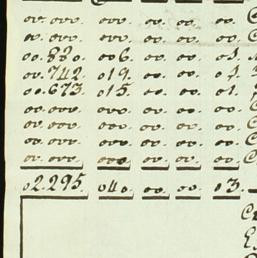 oo.ooo. ooo. oo. oo. oo.
oo.ooo. ooo. oo. oo. oo.
oo.880. 006. oo. oo. 01.
oo.742. 019. oo. oo. 01.
oo.673. 015. oo. oo. 01.
oo.ooo. ooo. oo. oo. oo.
oo.ooo. ooo. oo. oo. oo.
oo.ooo. ooo. oo. oo. oo.
oo.ooo. ooo. oo. oo. oo.
02.295. 040. oo. oo. 03.